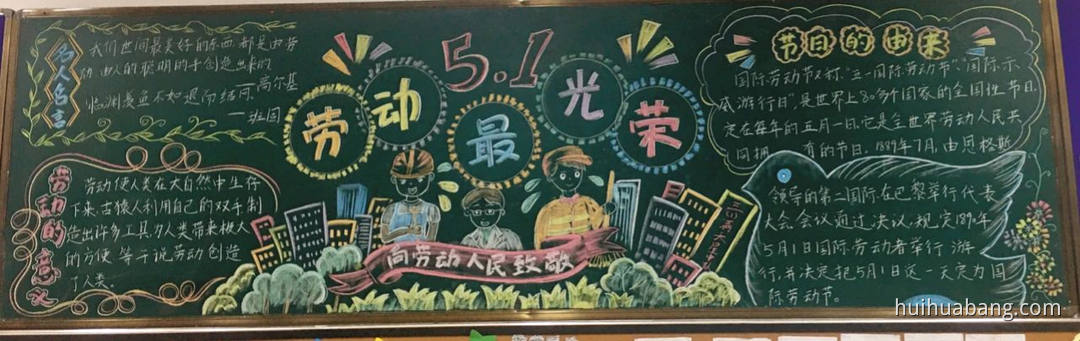 名人名言
我们世间最美好的东西,都是由劳
动、由人的聪明的手创造出来的
高尔基
临渊羡鱼不如退而结网
——班固
劳动的意义
劳动使人类在大自然中生存
下来,古猿人利用自己的双手制
造出许多工具,为人类带来极大
的方便,等于说劳动创造
了人类。
5.1
劳动最光荣
向劳动人民致敬
节日的由来
国际劳动节又称"五一国际劳动节","国际示
威游行日",是世界上80多个国家的全国性节日.
定在每年的五月一日.它是全世界劳动人民共
同拥有的节日.1889年7月,由恩格斯
领导的第二国际在巴黎举行代表
大会.会议通过决议,规定1890年
5月1日国际劳动者举行游
行,并决定把5月1日这一天定为国
际劳动节。
huihuabang.com